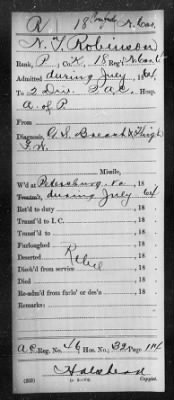 R 18 Confed N. Car.
N. T. Robinson
Rank, P Co. K, 18 Reg't N. Car. C
Admitted during July, 1864.
To 2 Div. 3 A. C. Hosp.
A. of P
From
Diagnosis, G. S. Breast & Thigh
F. W.
Missile,
W'd at Petersburg, Va, 18
during July, 64
Ret'd to duty , 18
Transf'd to I. C. , 18
Transf'd to , 18
Furloughed , 18
Deserted , 18
Disch'd from service , 18
Died , 18
Re-adm'd from furlo' or des'n , 18
Remarks:
A C Reg. No. 46 Hos. No. 32 Page 114
Halstead
Copyist.